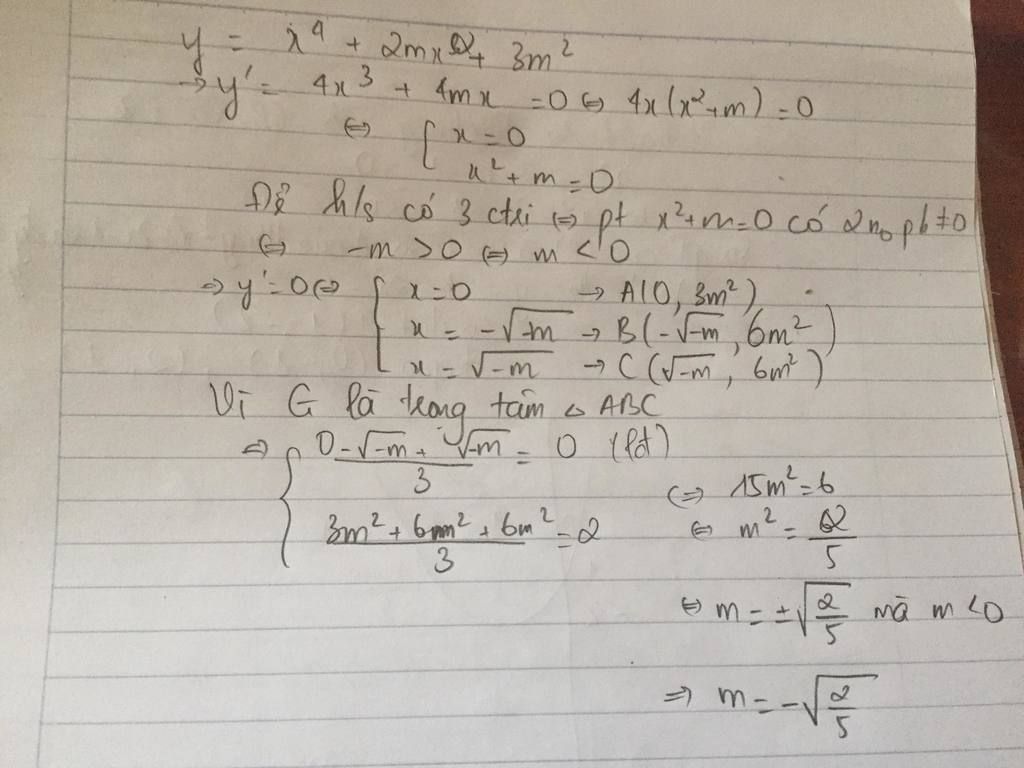 y = x⁴ + 2mx² + 3m²
→ y' = 4x³ + 4mx = 0 ⇔ 4x(x²+m) = 0
⇔ { x = 0
x² + m = 0
Để h/s có 3 ctrị ⇔ pt x²+m=0 có 2n₀ pb ≠0
⇔ -m > 0 ⇔ m < 0
→ y' = 0 ⇔ { x = 0 → A(0, 3m²)
x = -√-m → B(-√-m, 6m²)
x = √-m → C(√-m, 6m²)
Vì G là trọng tâm △ ABC
⇒ { (0 - √-m + √-m)/3 = 0 (lđ)
(3m² + 6m² + 6m²)/3 = 2
⇔ 15m² = 6
⇔ m² = 2/5
⇔ m = ±√(2/5) mà m < 0
⇒ m = -√(2/5)